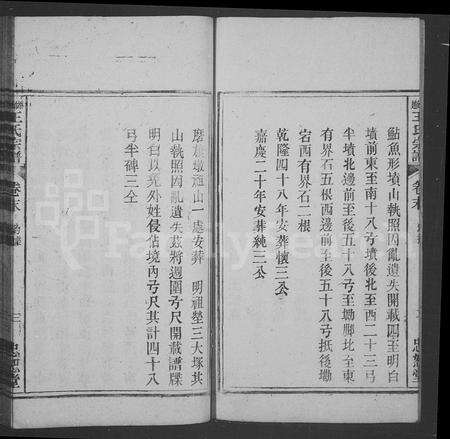 鮎魚形墳山執照因亂遺失開載四至明白
墳前東至南十八弓墳後北至西二十三弓
半墳北邊前至後五十八弓至坳鄺北至東
有界石五根西邊前至後五十八弓抵後坳
宕西有界石二根
乾隆四十八年安葬懷三公
嘉慶二十年安葬純三公
王氏宗譜
卷末
山一處安葬 明祖塋三大塚其
山執照因亂遺失茲將週圍弓尺開載譜牒
明白以免外姓侵佔境內弓尺其計四十八
弓半碑三仝
王氏宗譜
卷末
三